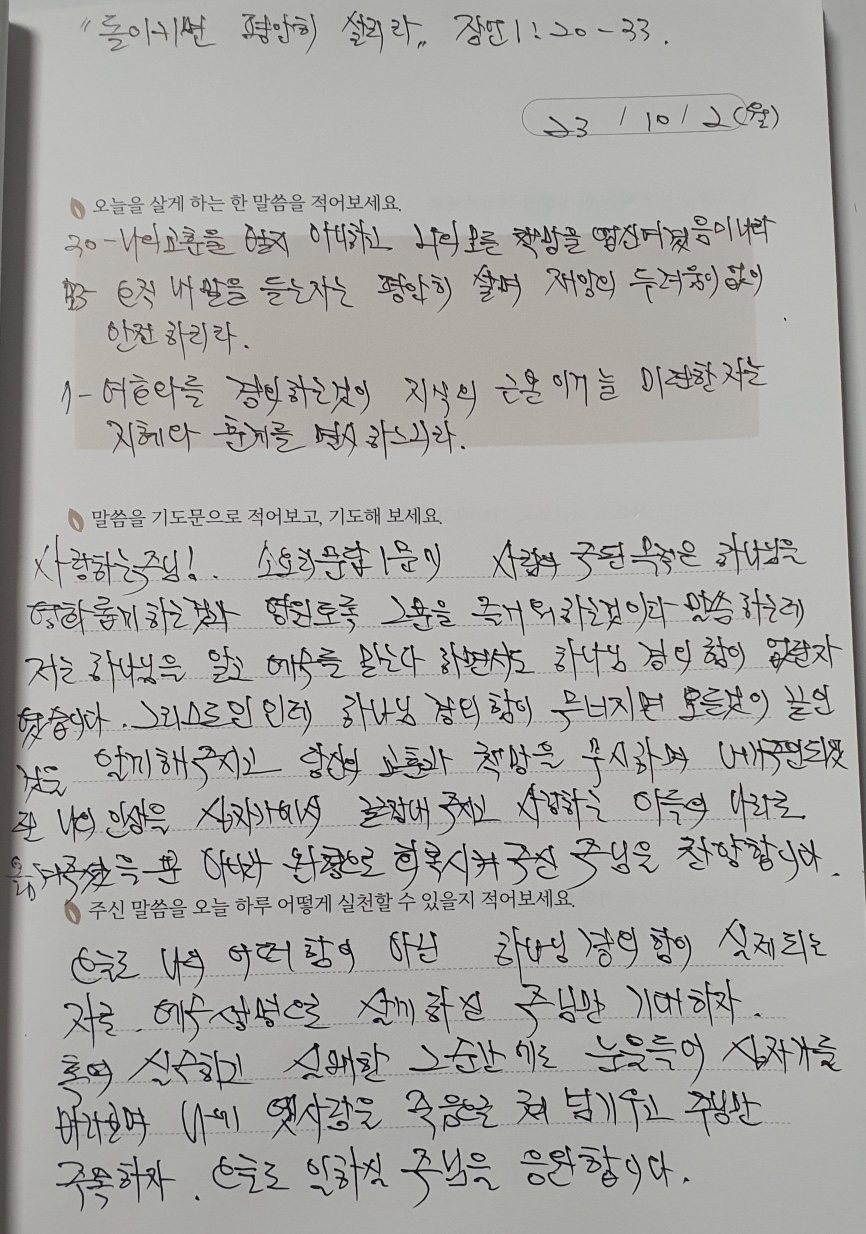 "돌이키면 평안히 살리라" 잠언 1:20-33.
23 / 10 / 2 (월)
오늘을 살게 하는 한 말씀을 적어보세요.
30-나의 교훈을 받지 아니하고 나의 모든 책망을 업신여겼음이니라
33- 오직 내 말을 듣는자는 평안히 살며 재앙의 두려움이 없이
안전 하리라.
7-여호와를 경외하는것이 지식의 근본이거늘 미련한 자는
지혜와 훈계를 멸시 하느니라.
말씀을 기도문으로 적어보고, 기도해 보세요.
사랑하는 주님!. 소요리문답 1문에 사람의 주된 목적은 하나님을
영화롭게 하는것과 영원토록 그분을 즐거워하는것이라 말씀 하는데
저는 하나님을 알고 예수를 믿는다 하면서도 하나님 경외함이 없는자
였습니다. 그리스도인인데 하나님 경외함이 무너지면 모든것이 끝인
것을 알게해 주시고 당신의 교훈과 책망을 무시하며 내가주인되었
던 나의 인생을 십자가에서 끝장내 주시고 사랑하는 아들의 나라로
옮겨주셨을 뿐 아니라 완전으로 회복시켜 주신 주님을 찬양합니다.
주신 말씀을 오늘 하루 어떻게 실천할 수 있을지 적어보세요.
오늘도 나의 어떠함이 아닌 하나님 경외함이 실제되는
자로. 예수생명으로 살게하실 주님만 기대하자.
혹여 실수하고 실패한 그순간에도 눈을들어 십자가를
바라보며 나의 옛사람을 죽음으로 넘기우고 주님만
주목하자. 오늘도 일하실 주님을 응원합니다.